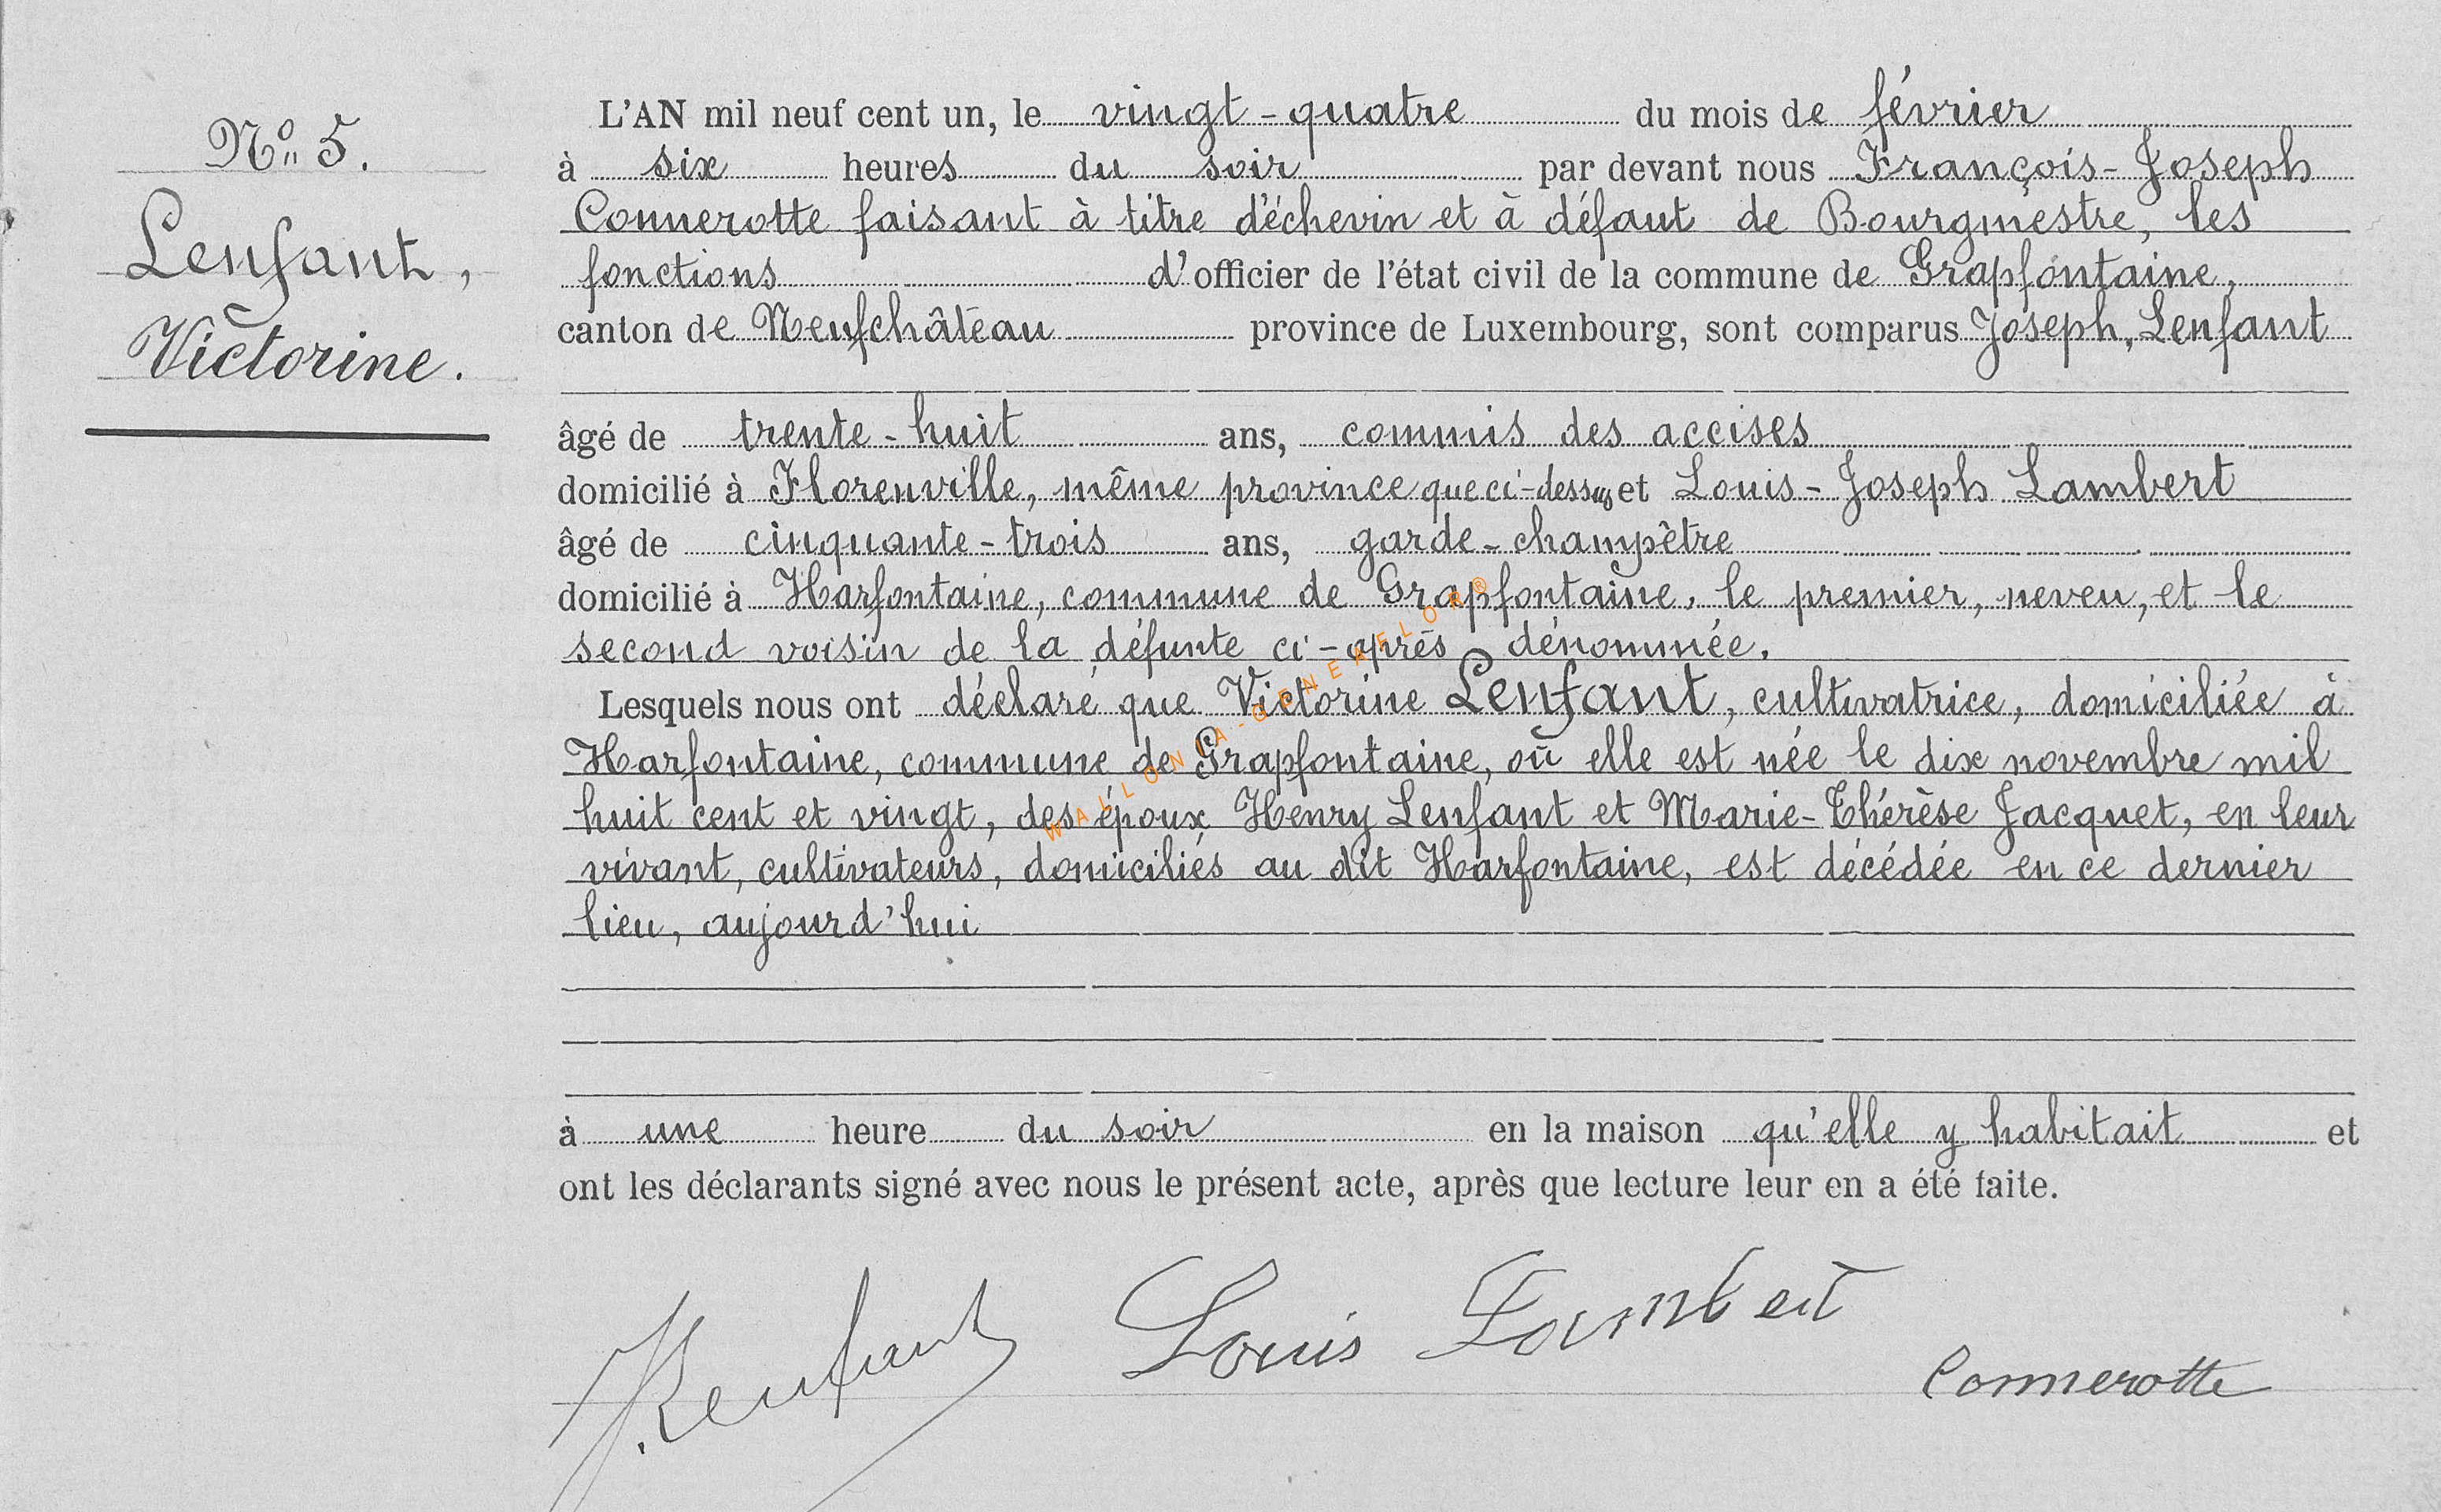 N° 5.
Lenfant,
Victorine.
L'AN mil neuf cent un, le vingt-quatre du mois de février
à six heures du soir par devant nous François-Joseph
Connerotte faisant à titre d'échevin et à défaut de Bourgmestre, les
fonctions d'officier de l'état civil de la commune de Grapfontaine,
canton de Neufchâteau province de Luxembourg, sont comparus Joseph, Lenfant
âgé de trente-huit ans, commis des accises
domicilié à Florenville, même province que ci-dessus et Louis-Joseph Lambert
âgé de cinquante-trois ans, garde-champêtre
domicilié à Harfontaine, commune de Grapfontaine, le premier, neveu, et le
second voisin de la défunte ci-après dénommée.
Lesquels nous ont déclaré que Victorine Lenfant, cultivatrice, domiciliée à
Harfontaine, commune de Grapfontaine, où elle est née le dix novembre mil
huit cent et vingt, des époux Henry Lenfant et Marie-Thérèse Jacquet, en leur
vivant, cultivateurs, domiciliés au dit Harfontaine, est décédée en ce dernier
lieu, aujourd'hui
à une heure du soir en la maison qu'elle y habitait et
ont les déclarants signé avec nous le présent acte, après que lecture leur en a été faite.
J. Lenfant Louis Lambert
Connerotte
WALLONIA-GENEAFLOR®